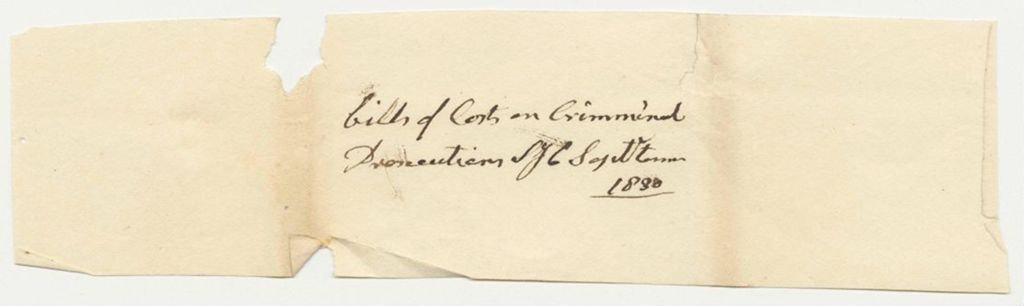 Bills of Costs on Crimminal
Prosecutions SJC Sept Term
1830